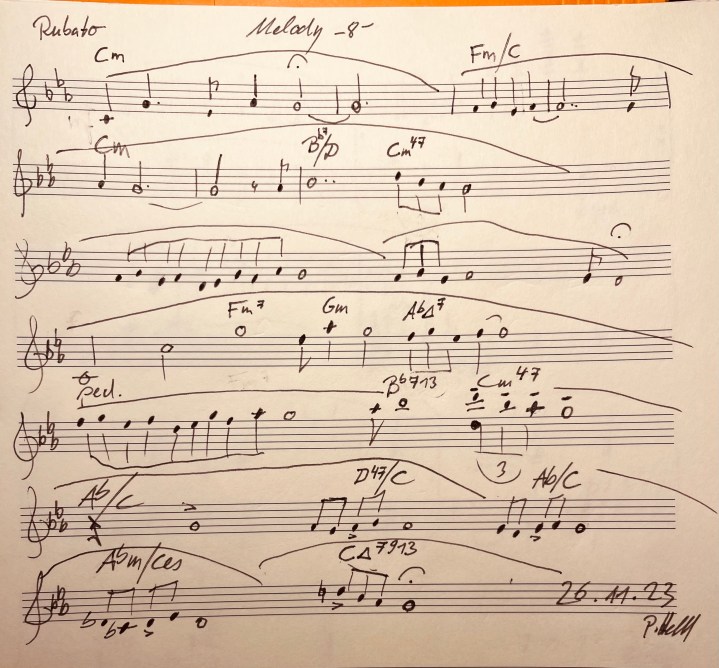 Rubato Melody -8-
Cm Fm/C
Cm Bb7/D Cm47
Fm7 Gm AbΔ7
Ped. Bb713 Cm47
3
Ab/C D47/C Ab/C
Abm/ces CΔ7913
26.11.23